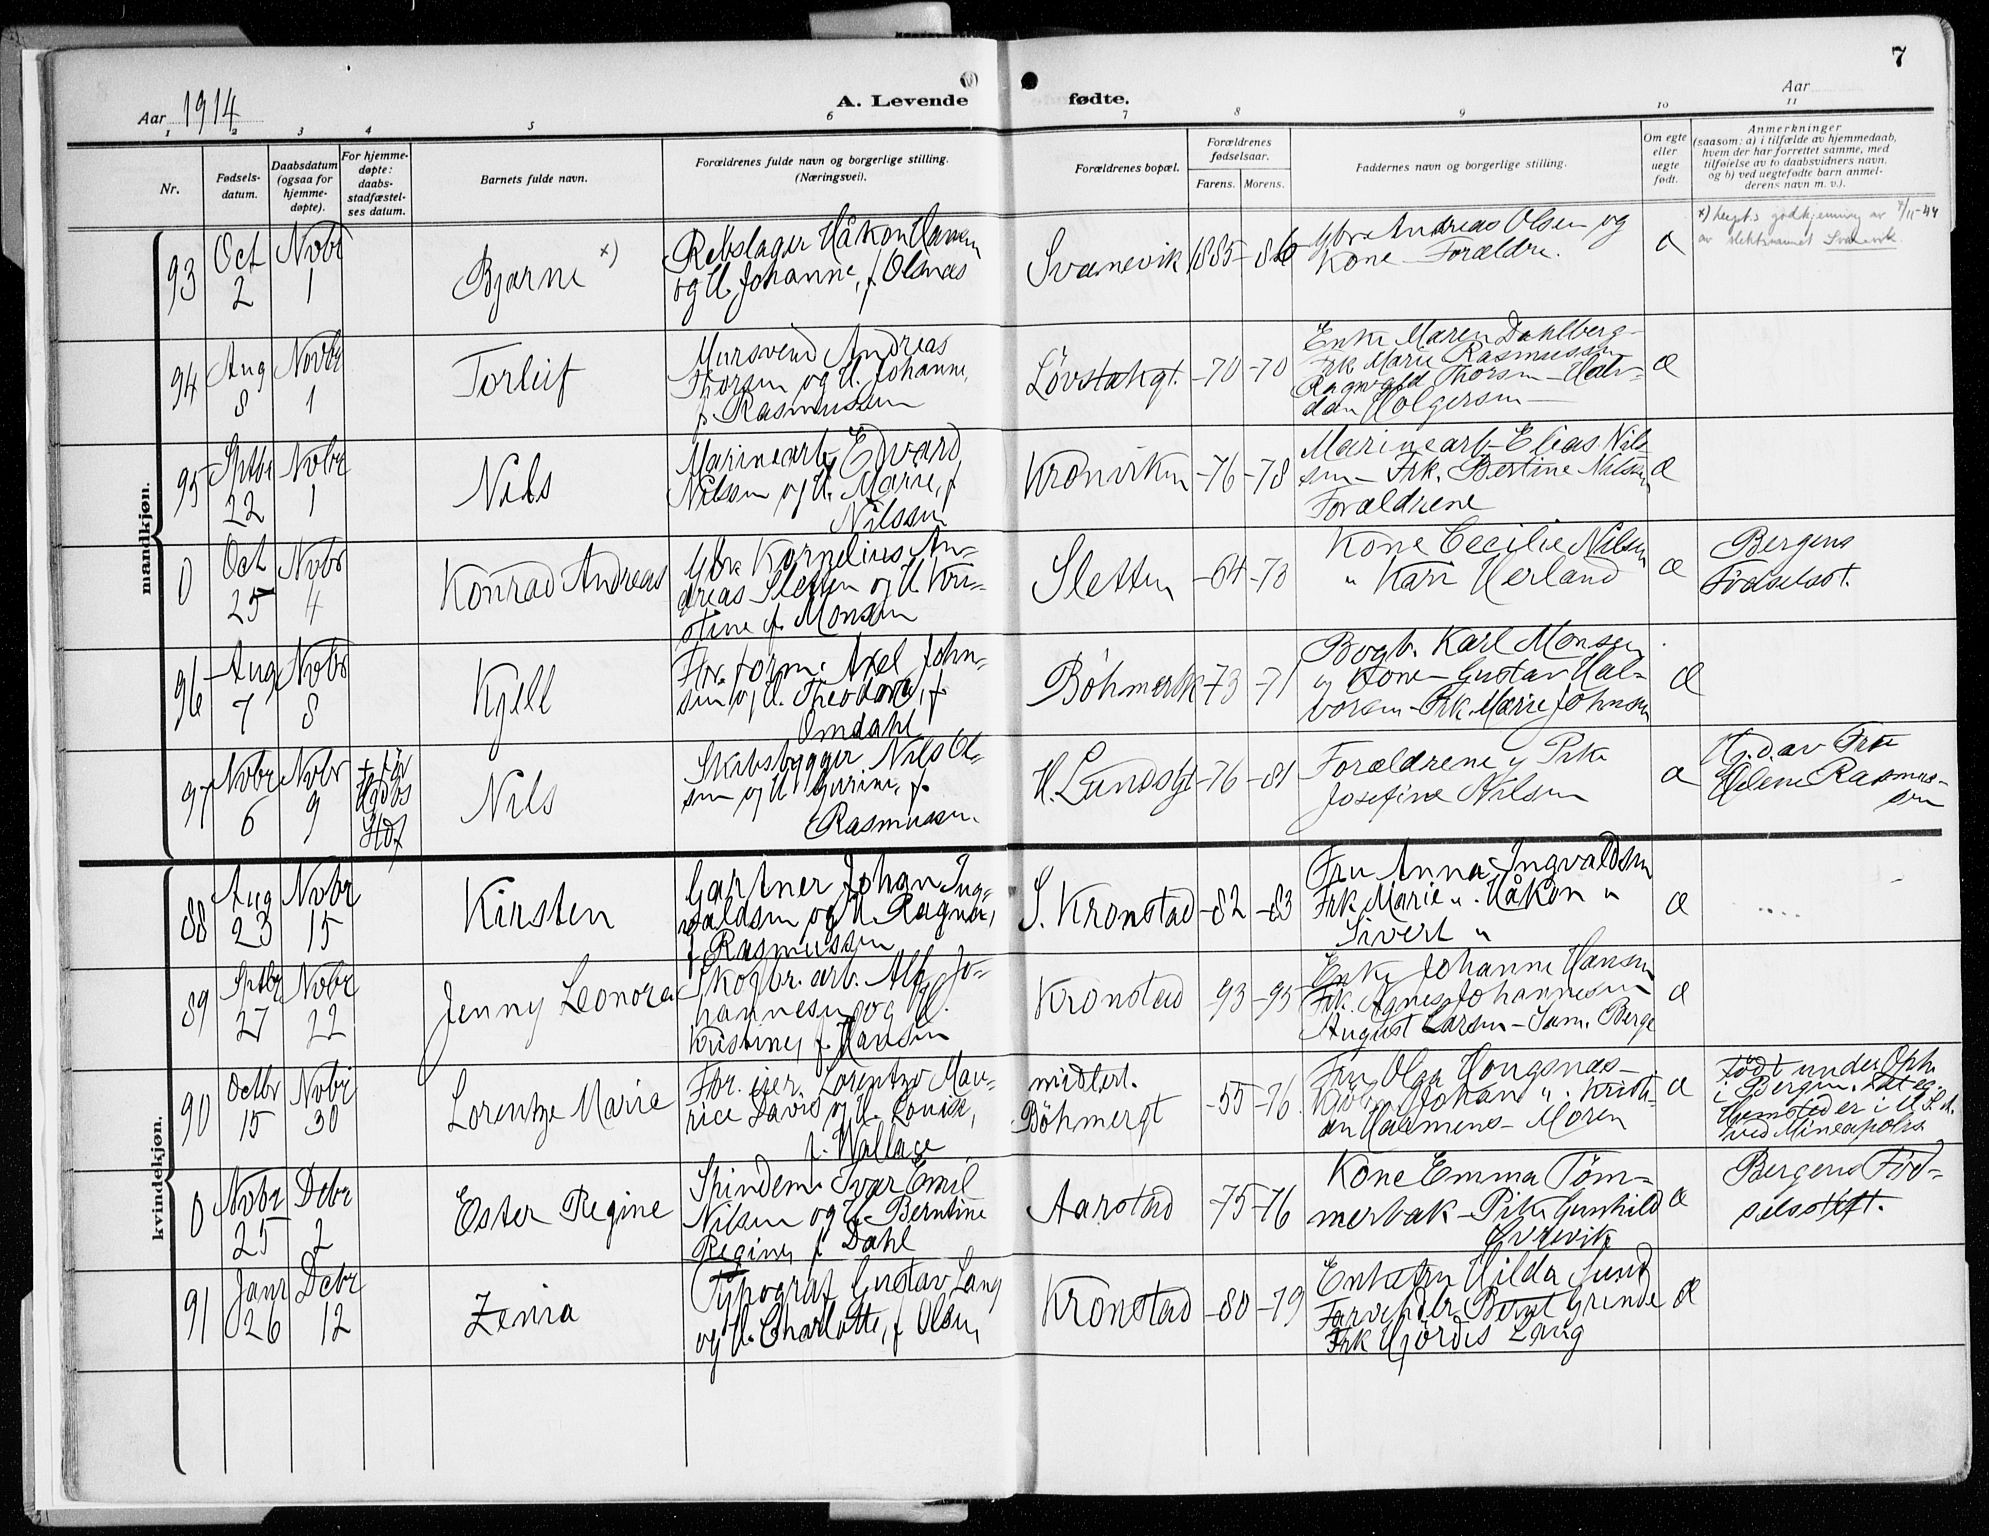 7
Aar 1914
A. Levende fødte.
Aar
1 2 3 4 5 6 7 8 9 10 11
Nr.
Fødsels-
datum.
Daabsdatum
(ogsaa for
hjemme-
døpte).
For hjemme-
døpte:
daabs-
stadfæstel-
ses datum.
Barnets fulde navn.
Forældrenes fulde navn og borgerlige stilling.
(Næringsvei).
Forældrenes bopæl.
Forældrenes
fødselsaar.
Farens. Morens.
Faddernes navn og borgerlige stilling.
Om egte
eller
uegte
født.
Anmerkninger
(saasom: a) i tilfælde av hjemmedaab,
hvem der har forrettet samme, med
tilføielse av to daabsvidners navn.
og b) ved uegtefødte barn anmel-
derens navn m. v.).
mandkjøn.
93
Oct
2
Novbr
1
Bjarne x)
Rebslager Håkon Hansen
og H. Johanne, f. Olsnæs
Svanevik
1885 -86
Gbr. Andreas Olsen og
Kone - Forældre.
æ
x) godkjenning av 4/11-44
av slektsnavnet Svanevik.
94
Aug
8
Novbr
1
Torleif
Mursvend Andreas
Thorsen og H. Johanne,
f. Rasmussen
Løvstakgt.
-70 -70
Enke Maren Dahlberg -
Frk Marie Rasmussen
Ragnvald Thorsen - Halv-
dan Holgersen -
æ
95
Sptbr
22
Novbr
1
Nils
Marinearb. Edvard
Nilsen og H. Marie, f
Nilssen
Kronviken
-76 -78
Marinearb. Elias Nil-
sen - Frk. Bertine Nilsen
Forældrene
æ
0
Oct
25
Novbr
4
Konrad Andreas
Gbr. Kornelius An-
dreas Sletten og H. Kri-
stine f. Monsen
Sletten
-64 -73
Kone Cecilie Nilsen
" Kari Herland
æ
Bergens
Fødselsst.
96
Aug
7
Novbr
8
Kjell
For. form. Axel John-
sen og H. Theodora, f.
Omdahl
Böhmerbk
-73 -71
Bogb. Karl Monsen
og Kone - Gustav Hal-
vorsen - Frk. Marie Johnsen
æ
97
Novbr
6
Novbr
9
Nils
Skibsbygger Nils Ol-
sen og H. Gurine, f.
Rasmussen.
H. Lundsgt
-76 -81
Forældrene og Pike
Josefine Nilsen
æ
Hj.d. av Frk
Helene Rasmus-
sen
kvindekjøn.
88
Aug
23
Novbr
15
Kirsten
Gartner Johan Ing-
valdsen og H. Ragna,
f. Rasmussen
S. Kronstad
-82 -83
Fru Anna Ingvaldsen
Frk. Marie ". Håkon "
Sivert "
æ
89
Sptbr
27
Novbr
22
Jenny Leonora
Skogbr. arb. Alf Jo-
hannesen og H.
Kristine, f. Hansen
Kronstad
-93 -95
Enke Johanne Hansen
Frk. Agnes Johannesen
August Larsen - Sam. Berge
æ
90
Octbr
15
Novbr
30
Lorentze Marie
For. eier Lorentzo Mau-
rice Davis og H. Louise,
f. Wallace
midlert.
Böhmergt
-55 -76
Fru Olga Hougsnæs -
Johan ". Kristi-
an Halmens - Moren
æ
Født under Oph.
i Bergen. Fat. eg.
Hemsted er i U.S.A.
ved Mineapolis
0
Novbr
25
Debr
2
Ester Regine
Spindem. Ivar Emil
Nilsen og H. Berntine
Regine, f. Dahl
Aarstad
-75 -76
Kone Emma Töm-
merbak - Pike Gunhild
æ
Bergens Fød-
selsstift.
91
Janr
26
Debr
12
Zenia
Typograf Gustav Lang
og H. Charlotte, f. Olsen,
Kronstad
-80 -79
Enkefru Hilda Lund
Farvehdlr. Bernt Grinde
Frk Hjördis Lang
æ